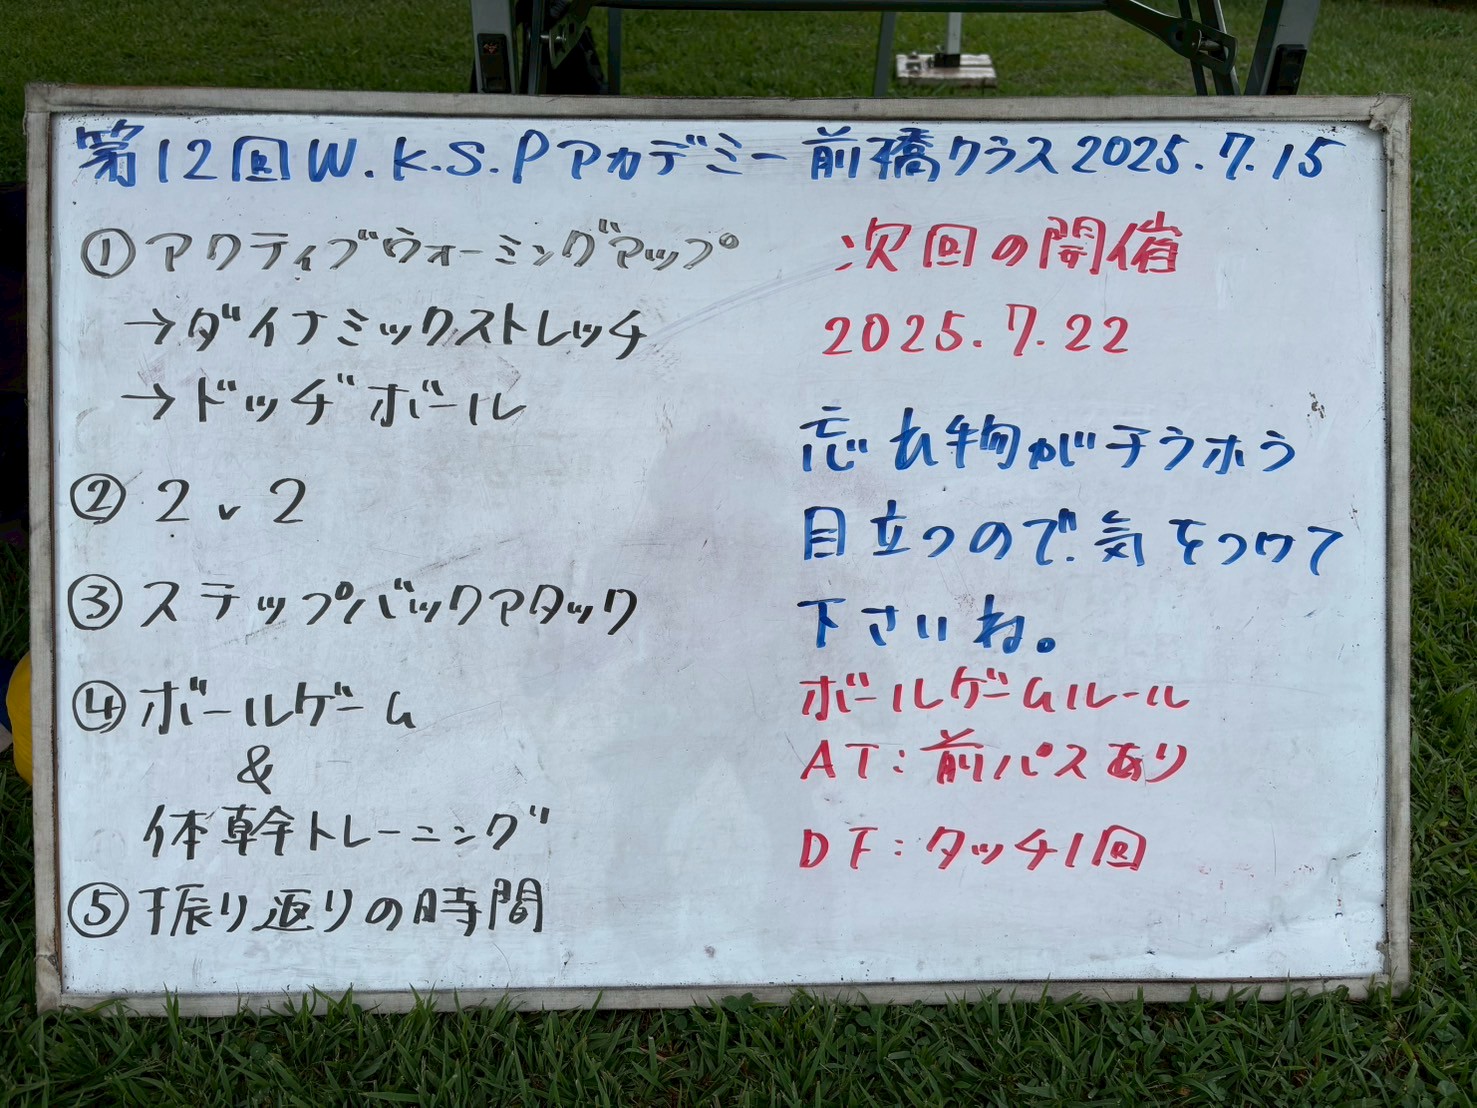 第12回W.K.S.Pアカデミー前橋クラス2025.7.15
①アクティブウォーミングアップ
→ダイナミックストレッチ
→ドッヂボール
② 2v2
③ステップバックアタック
④ボールゲーム
&
体幹トレーニング
⑤振り返りの時間
次回の開催
2025.7.22
忘れ物がチラホラ
目立つので気をつけて
下さいね。
ボールゲームルール
AT:前パスあり
DF:タッチ1回